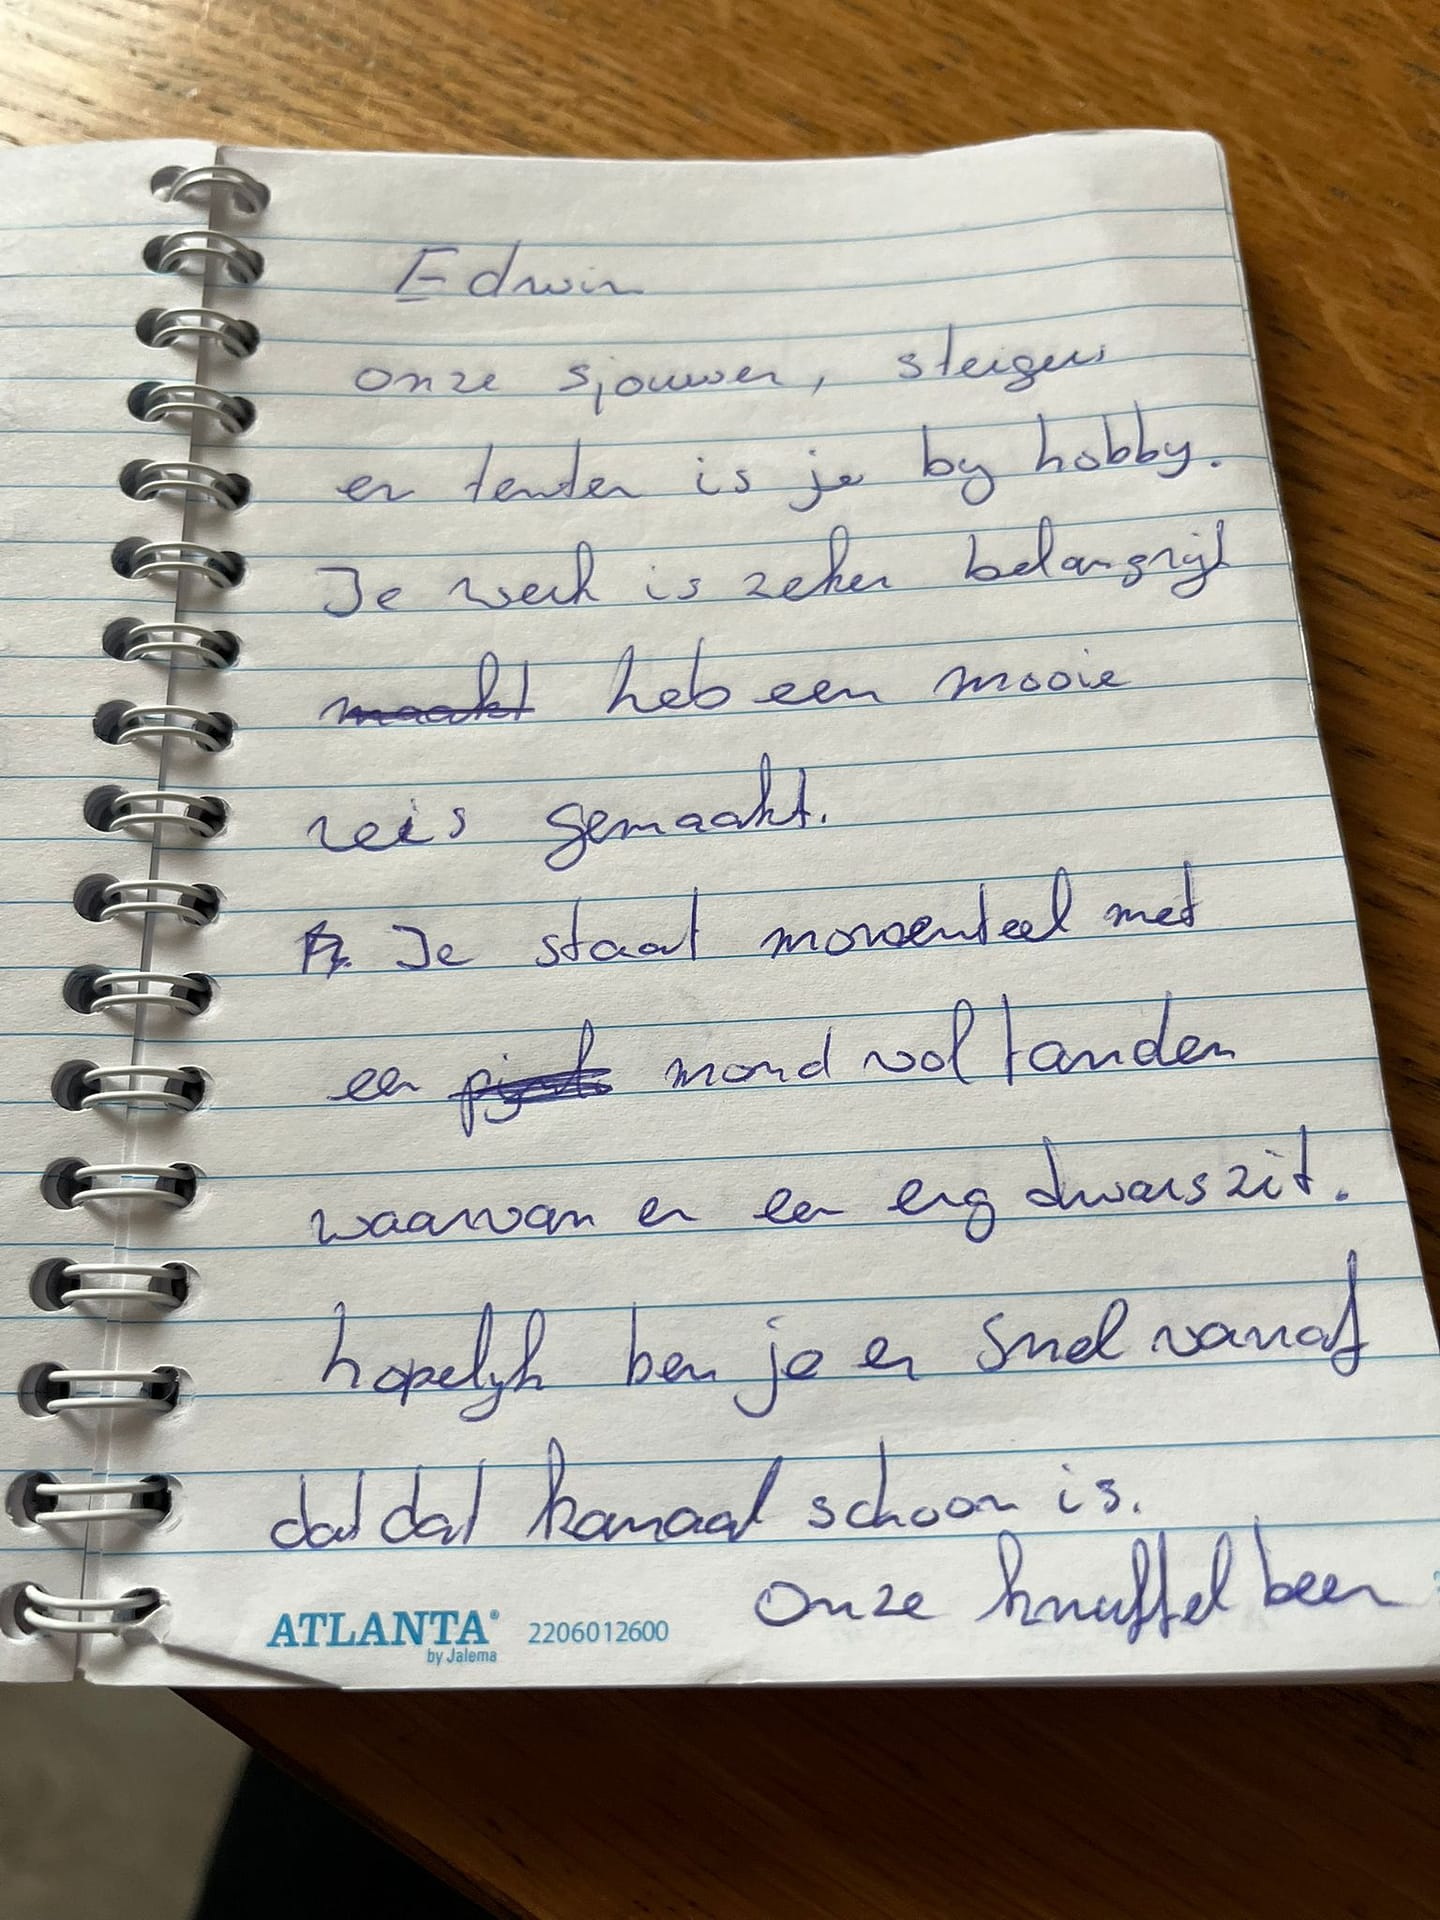 Edwin
onze sjouwer, steigers
en tenten is je by hobby.
Je werk is zeker belangrijk
maakt heb een mooie
reis gemaakt.
Je staat momenteel met
een mond vol tanden
waarvan er een erg dwars zit.
hopelijk ben je er snel vanaf
dat dat kanaal schoon is.
onze knuffel beer
ATLANTA®
by Jalema
2206012600